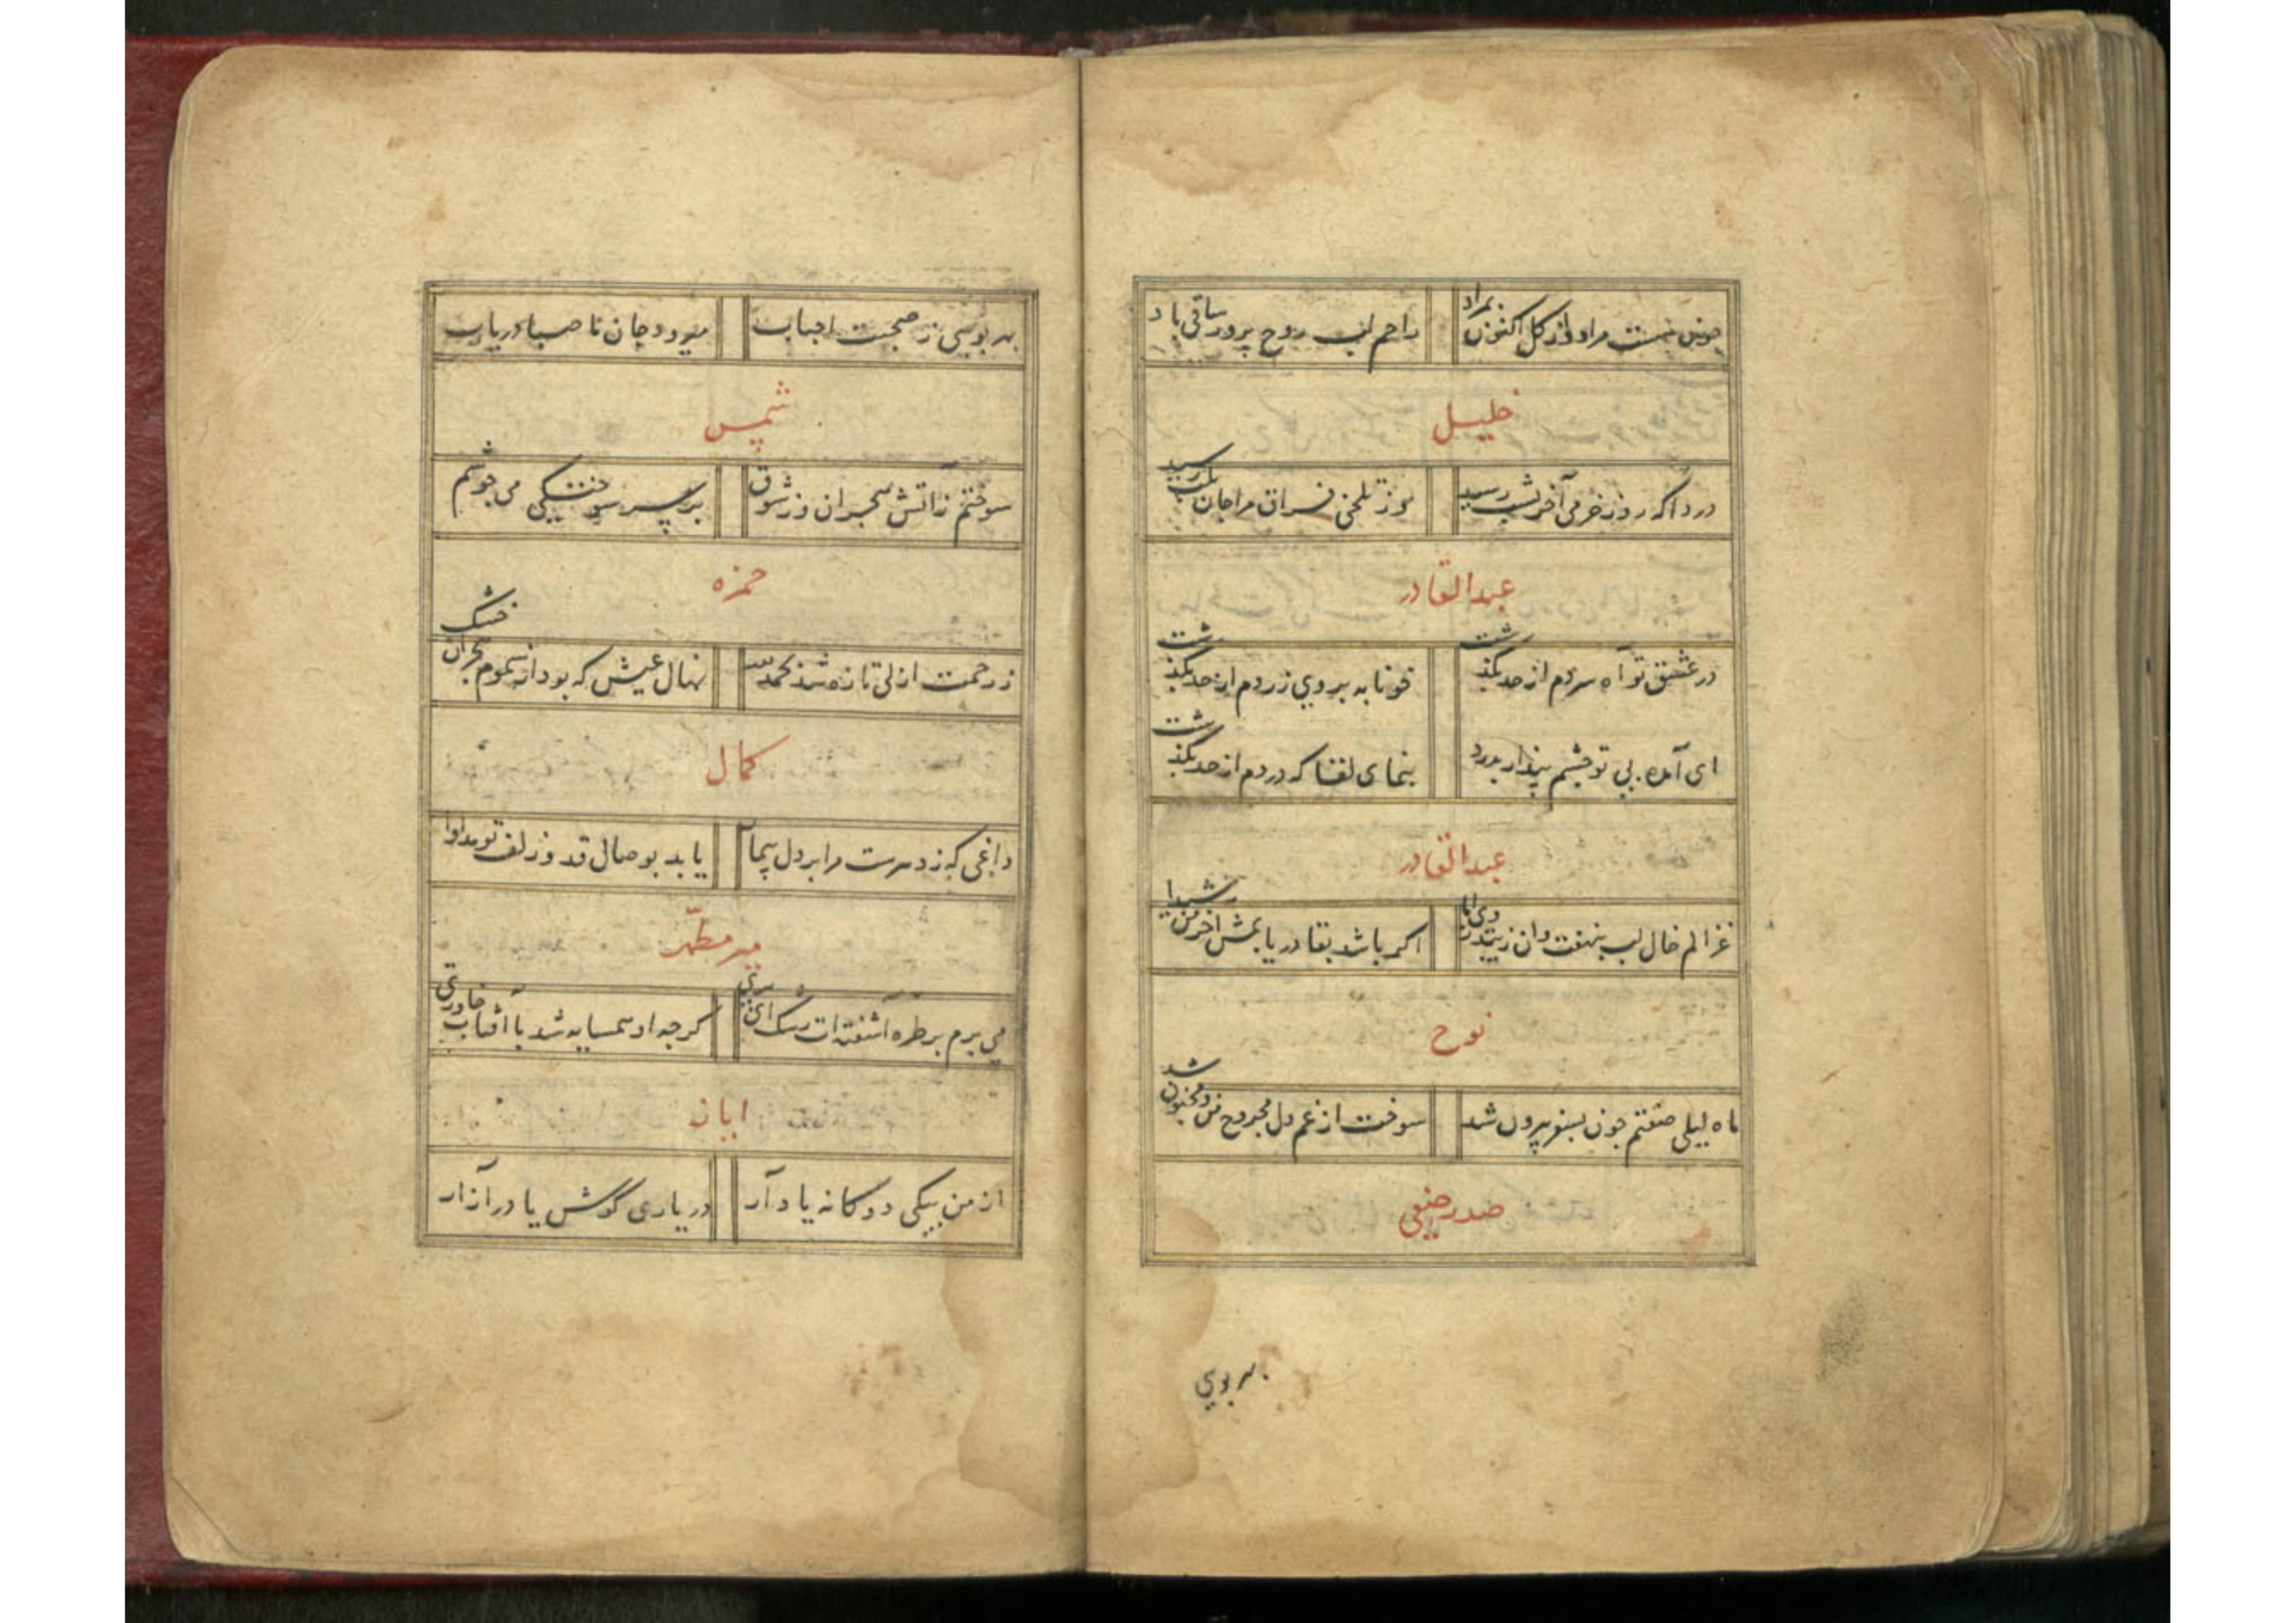 چون نیست مراد از کل اکنون بمراد
راحم لب روح پرور ساقی باد
خلیل
دردا که روز خرمی آخر بشب رسید
وز تلخی فراق مرا جان بلب رسید
عبدالقادر
در عشق تو آه سردم از حد بگذشت
خونابه بروی زردم از حد بگذشت
ای آمده بی تو چشم پندار بدرد
بنمای لقا که دردم از حد بگذشت
عبدالقادر
غزالم خال لب بنهفت وان
اکر باشد بقا دریابمش آخر من شیدا
نوح
ماه لیلی صفتم چون بسفر بیرون شد
سوخت از غم دل مجروح من و مجنون شد
صدر حنفی
بهر بوی
بهر بویی ز صحبت احباب
میرود جان تا صبا دریاب
شمس
سوختم ز آتش هجران وز شوق
بر سر سوختگی می جوشم
حمزه
ز رحمت ازلی تازه شد بحمد الله
نهال عیش که بود از سموم هجران خشک
کمال
داغی که ز دهرست مرا بر دل
یابد بوصال قد و زلف تو مداوا
میر مطهر
می برم بر طره آشفته ات رشک ای پری
کرچه او همسایه شد با آفتاب خاوری
ابانه
از من بیکی دوکانه یاد آر
در یاری کوش یا در آزار